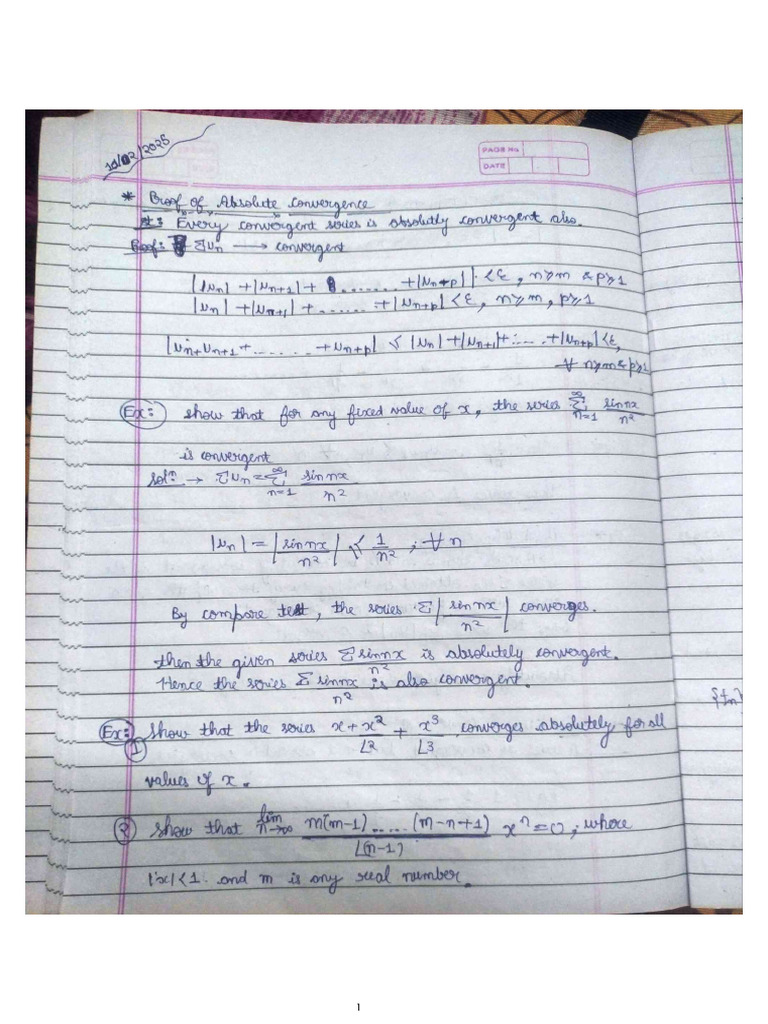 10/02/2025
PAGE No
DATE
* Proof of Absolute convergence
st: Every convergent series is absolutly convergent also.
Proof: Σuₙ → convergent
||uₙ| + |uₙ₊₁| + ....... + |uₙ₊ₚ|| < ε, n≥m & p≥1
|uₙ| + |uₙ₊₁| + ....... + |uₙ₊ₚ| < ε, n≥m, p≥1
|uₙ + uₙ₊₁ + ....... + uₙ₊ₚ| ≤ |uₙ| + |uₙ₊₁| + ..... + |uₙ₊ₚ| < ε,
∀ n≥m & p≥1
Ex: show that for any fixed value of x, the series Σ_{n=1}^{∞} sin nx / n²
is convergent
solⁿ: → Σuₙ = Σ_{n=1}^{∞} sin nx / n²
|uₙ| = |sin nx / n²| ≤ 1/n² ; ∀ n
By compare test, the series Σ|sin nx / n²| converges.
then the given series Σ sin nx / n² is absolutely convergent.
Hence the series Σ sin nx / n² is also convergent.
Ex: 1 Show that the series x + x²/⌊2 + x³/⌊3 converges absolutely for all
values of x.
2 show that lim_{n→∞} m(m-1).....(m-n+1) / ⌊(n-1) xⁿ = 0, where
|x| < 1 and m is any real number.
1